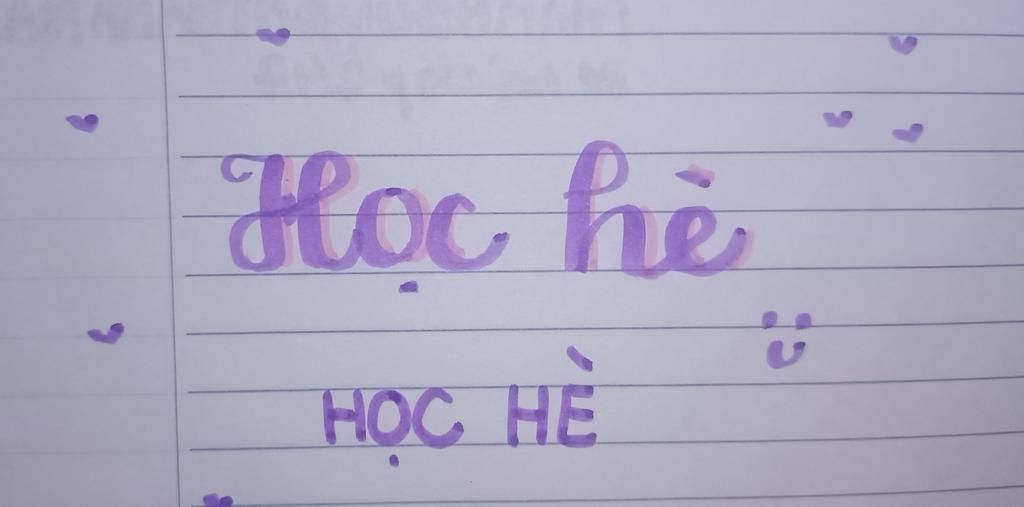 Học hè
HỌC HÈ